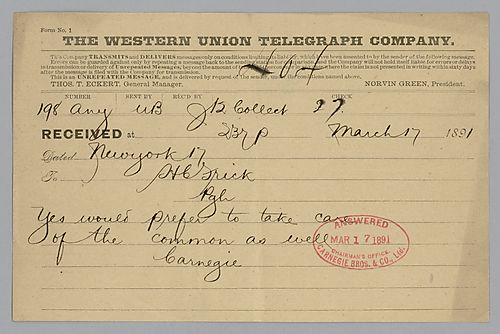 Form No. 1
THE WESTERN UNION TELEGRAPH COMPANY.
This Company TRANSMITS and DELIVERS messages only on conditions limiting its liability, which have been assented to by the sender of the following message.
Errors can be guarded against only by repeating a message back to the sending station for comparison, and the Company will not hold itself liable for errors or delays
in transmission or delivery of Unrepeated Messages, beyond the amount of tolls paid thereon, nor in any case where the claim is not presented in writing within sixty days
after the message is filed with the Company for transmission.
This is an UNREPEATED MESSAGE, and is delivered by request of the sender, under the conditions named above.
THOS. T. ECKERT, General Manager. NORVIN GREEN, President.
NUMBER SENT BY REC'D BY CHECK
198 Any UB JB Collect
RECEIVED at 237 p March 17 1891
Dated New york 17
To HC Frick
Pgh
Yes would prefer to take care
of the common as well
Carnegie
ANSWERED
MAR 17 1891
CHAIRMAN'S OFFICE.
CARNEGIE BROS. & CO., Ltd.